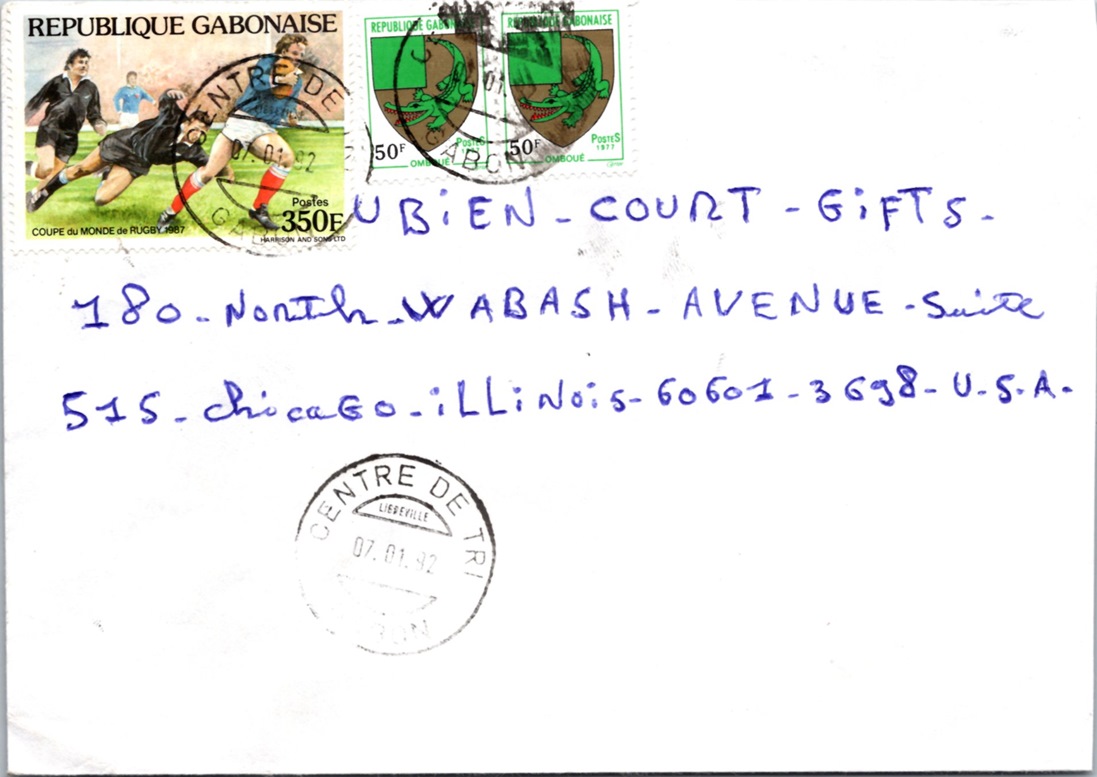 REPUBLIQUE GABONAISE
COUPE du MONDE de RUGBY 1987
Postes
350F
HARRISON AND SONS LTD
REPUBLIQUE GABONAISE
50F
OMBOUÉ
POSTES
1977
REPUBLIQUE GABONAISE
50F
OMBOUÉ
POSTES
1977
CENTRE DE
07.01.92
GABON
GABON
UBiEN - COURT - GiFTS -
180 - NORTh - WABASH - AVENUE - Suite
515 - ChicaGO - iLLiNois - 60601 - 3698 - U.S.A -
CENTRE DE TRI
LIBREVILLE
07.01.92